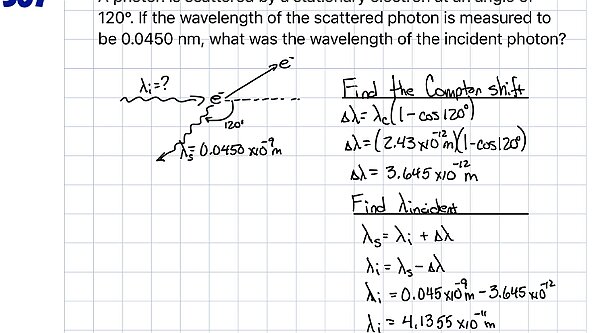 A photon is scattered by a stationary electron at an angle of
120°. If the wavelength of the scattered photon is measured to
be 0.0450 nm, what was the wavelength of the incident photon?
e⁻
λi=?
e⁻
120°
λs= 0.0450 x10⁻⁹m
Find the Compton shift
Δλ= λc(1-cos120°)
Δλ=(2.43x10⁻¹²m)(1-cos120°)
Δλ= 3.645x10⁻¹²m
Find λincident
λs= λi + Δλ
λi = λs-Δλ
λi = 0.045x10⁻⁹m - 3.645x10⁻¹²
λi = 4.1355x10⁻¹¹m